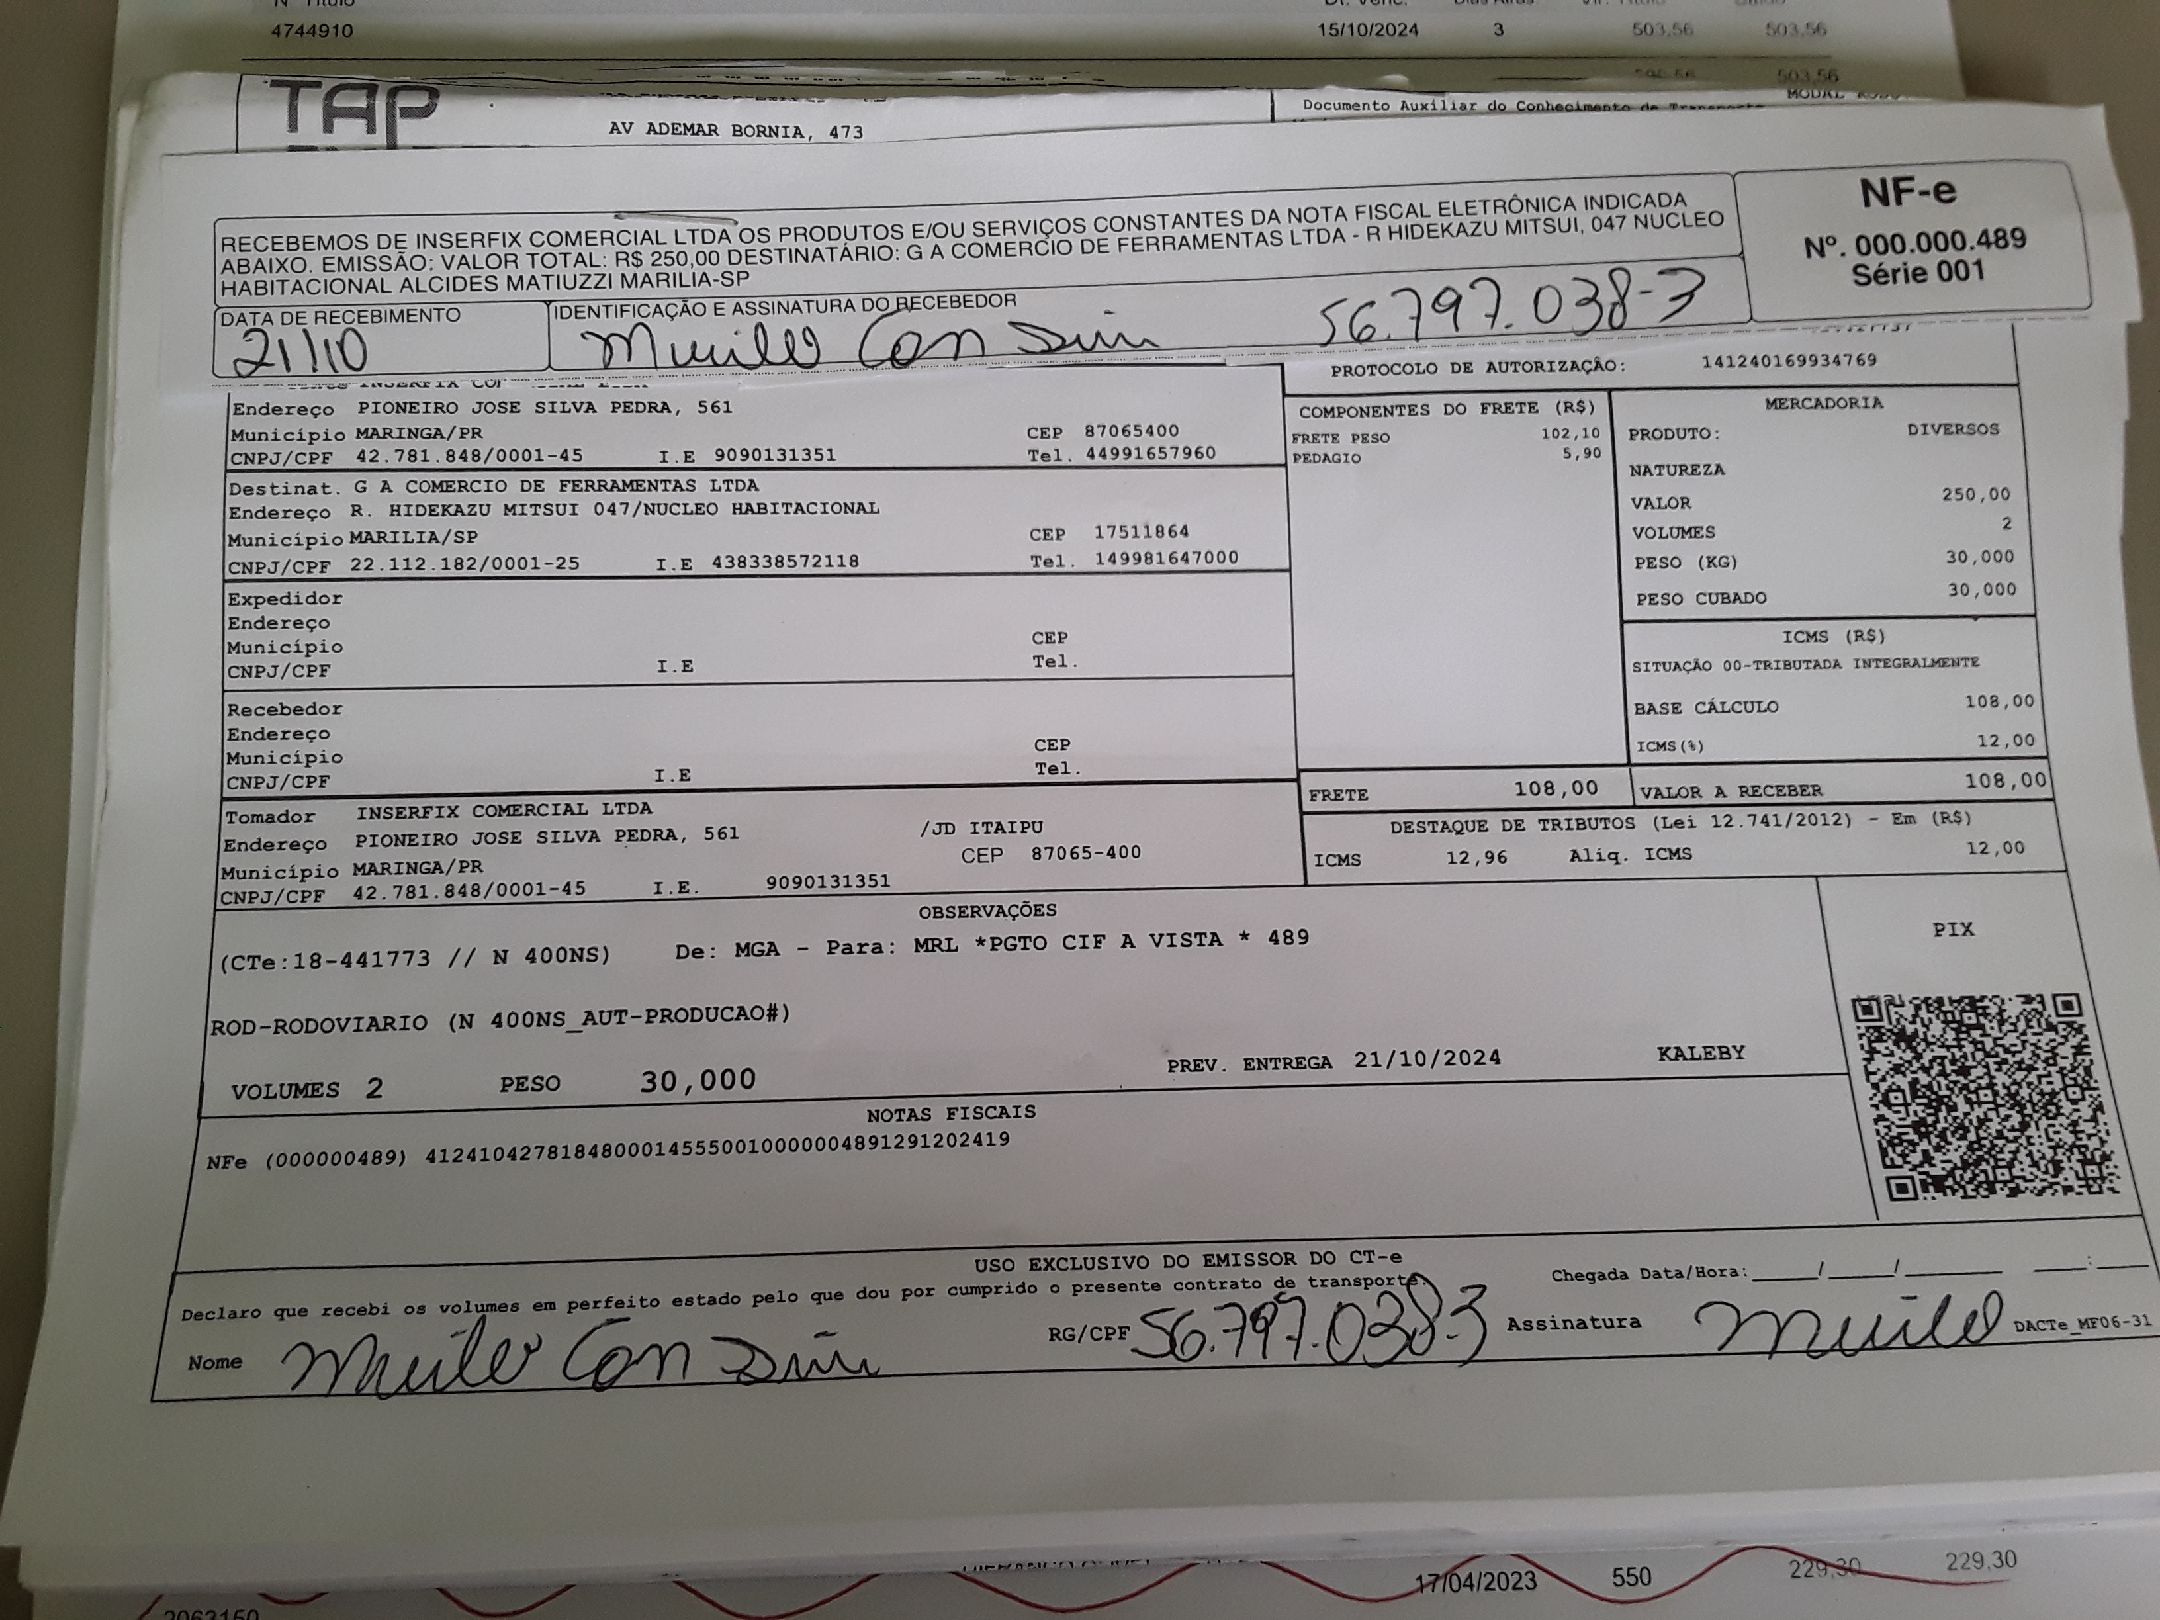 Nº Título Dt. Venc. Dias Atras Vlr. Título
4744910 15/10/2024 3 503,56 503,56
503,56
TAP
AV ADEMAR BORNIA, 473
Documento Auxiliar do Conhecimento de Transporte
RECEBEMOS DE INSERFIX COMERCIAL LTDA OS PRODUTOS E/OU SERVIÇOS CONSTANTES DA NOTA FISCAL ELETRÔNICA INDICADA
ABAIXO. EMISSÃO: VALOR TOTAL: R$ 250,00 DESTINATÁRIO: G A COMERCIO DE FERRAMENTAS LTDA - R HIDEKAZU MITSUI, 047 NUCLEO
HABITACIONAL ALCIDES MATIUZZI MARILIA-SP
NF-e
Nº. 000.000.489
Série 001
DATA DE RECEBIMENTO
21/10
IDENTIFICAÇÃO E ASSINATURA DO RECEBEDOR
56.797.038-3
PROTOCOLO DE AUTORIZAÇÃO: 141240169934769
Endereço PIONEIRO JOSE SILVA PEDRA, 561
Município MARINGA/PR CEP 87065400
CNPJ/CPF 42.781.848/0001-45 I.E 9090131351 Tel. 44991657960
Destinat. G A COMERCIO DE FERRAMENTAS LTDA
Endereço R. HIDEKAZU MITSUI 047/NUCLEO HABITACIONAL
Município MARILIA/SP CEP 17511864
CNPJ/CPF 22.112.182/0001-25 I.E 438338572118 Tel. 149981647000
Expedidor
Endereço
Município CEP
CNPJ/CPF I.E Tel.
Recebedor
Endereço
Município CEP
CNPJ/CPF I.E Tel.
Tomador INSERFIX COMERCIAL LTDA
Endereço PIONEIRO JOSE SILVA PEDRA, 561 /JD ITAIPU
Município MARINGA/PR CEP 87065-400
CNPJ/CPF 42.781.848/0001-45 I.E. 9090131351
COMPONENTES DO FRETE (R$)
FRETE PESO 102,10
PEDAGIO 5,90
MERCADORIA
PRODUTO: DIVERSOS
NATUREZA
VALOR 250,00
VOLUMES 2
PESO (KG) 30,000
PESO CUBADO 30,000
ICMS (R$)
SITUAÇÃO 00-TRIBUTADA INTEGRALMENTE
BASE CÁLCULO 108,00
ICMS(%) 12,00
FRETE 108,00 VALOR A RECEBER 108,00
DESTAQUE DE TRIBUTOS (Lei 12.741/2012) - Em (R$)
ICMS 12,96 Aliq. ICMS 12,00
OBSERVAÇÕES
(CTe:18-441773 // N 400NS) De: MGA - Para: MRL *PGTO CIF A VISTA * 489
ROD-RODOVIARIO (N 400NS_AUT-PRODUCAO#)
VOLUMES 2 PESO 30,000 PREV. ENTREGA 21/10/2024 KALEBY
PIX
NOTAS FISCAIS
NFe (000000489) 41241042781848000145550010000004891291202419
USO EXCLUSIVO DO EMISSOR DO CT-e
Declaro que recebi os volumes em perfeito estado pelo que dou por cumprido o presente contrato de transporte. Chegada Data/Hora:____/____/______ ___:___
Nome RG/CPF 56.797.038-3 Assinatura DACTe_MF06-31
17/04/2023 550 229,30 229,30